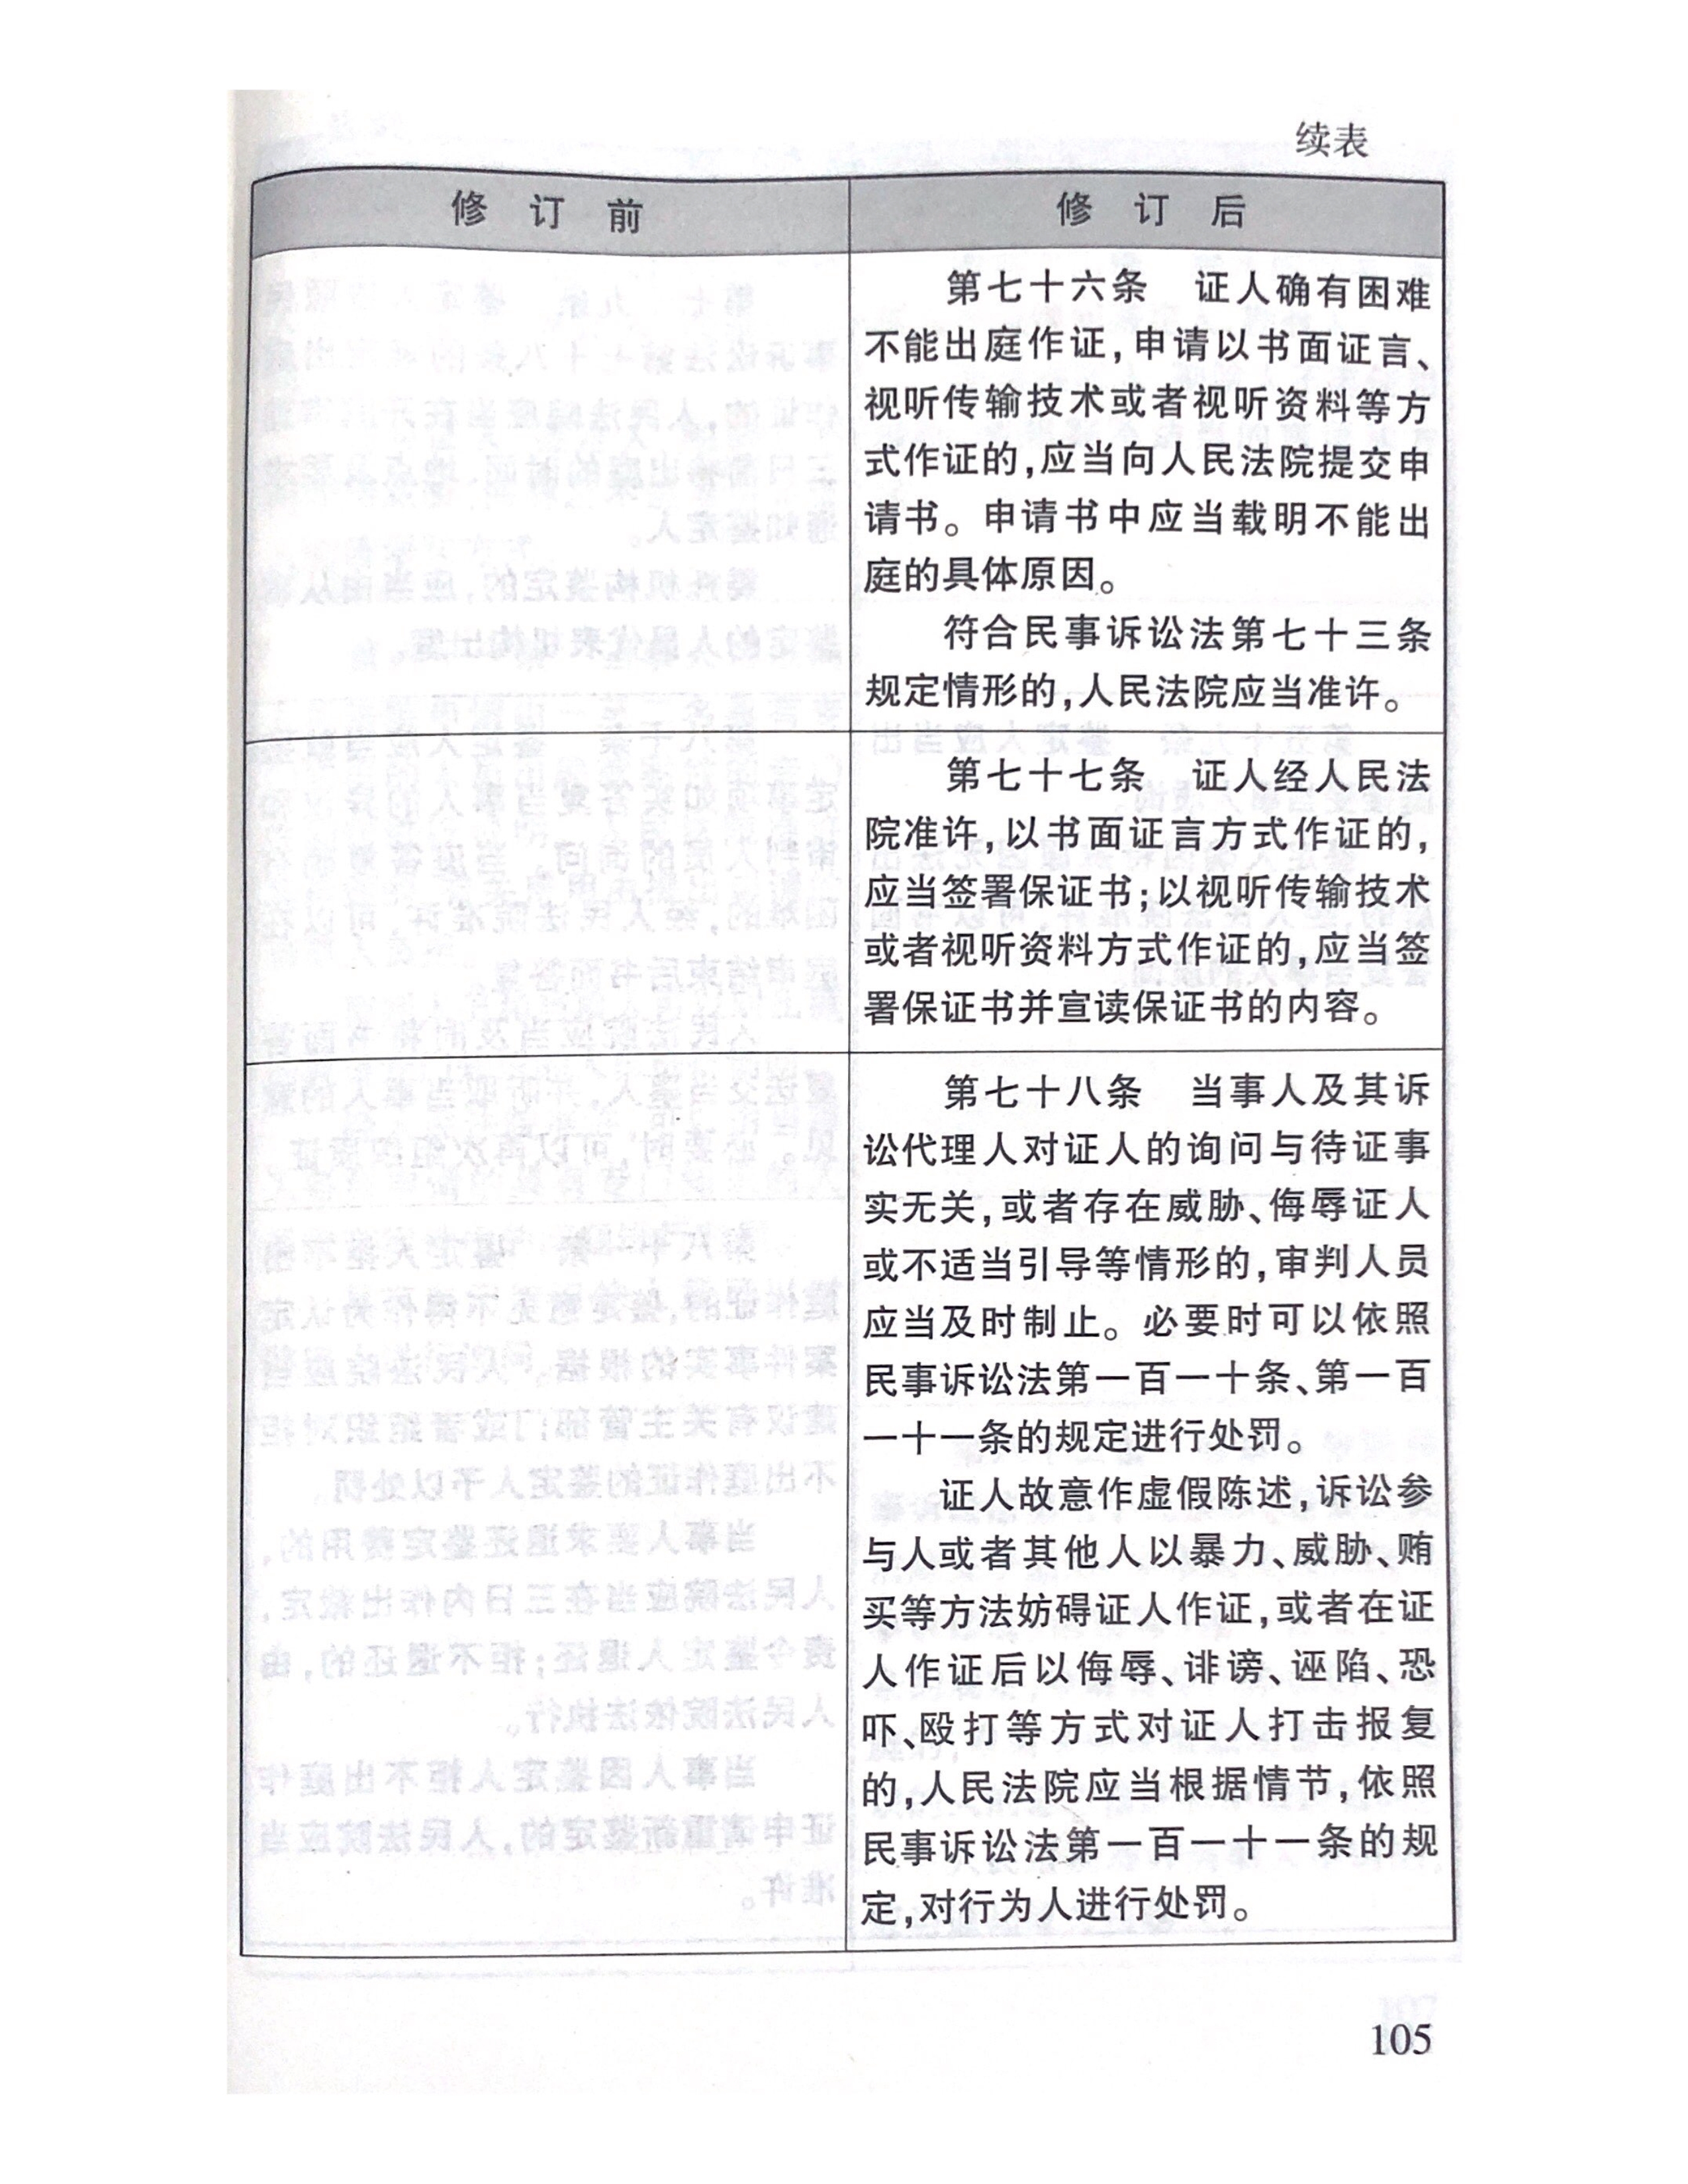 续表
修 订 前
修 订 后
第七十六条 证人确有困难
不能出庭作证,申请以书面证言、
视听传输技术或者视听资料等方
式作证的,应当向人民法院提交申
请书。申请书中应当载明不能出
庭的具体原因。
符合民事诉讼法第七十三条
规定情形的,人民法院应当准许。
第七十七条 证人经人民法
院准许,以书面证言方式作证的,
应当签署保证书;以视听传输技术
或者视听资料方式作证的,应当签
署保证书并宣读保证书的内容。
第七十八条 当事人及其诉
讼代理人对证人的询问与待证事
实无关,或者存在威胁、侮辱证人
或不适当引导等情形的,审判人员
应当及时制止。必要时可以依照
民事诉讼法第一百一十条、第一百
一十一条的规定进行处罚。
证人故意作虚假陈述,诉讼参
与人或者其他人以暴力、威胁、贿
买等方法妨碍证人作证,或者在证
人作证后以侮辱、诽谤、诬陷、恐
吓、殴打等方式对证人打击报复
的,人民法院应当根据情节,依照
民事诉讼法第一百一十一条的规
定,对行为人进行处罚。
105